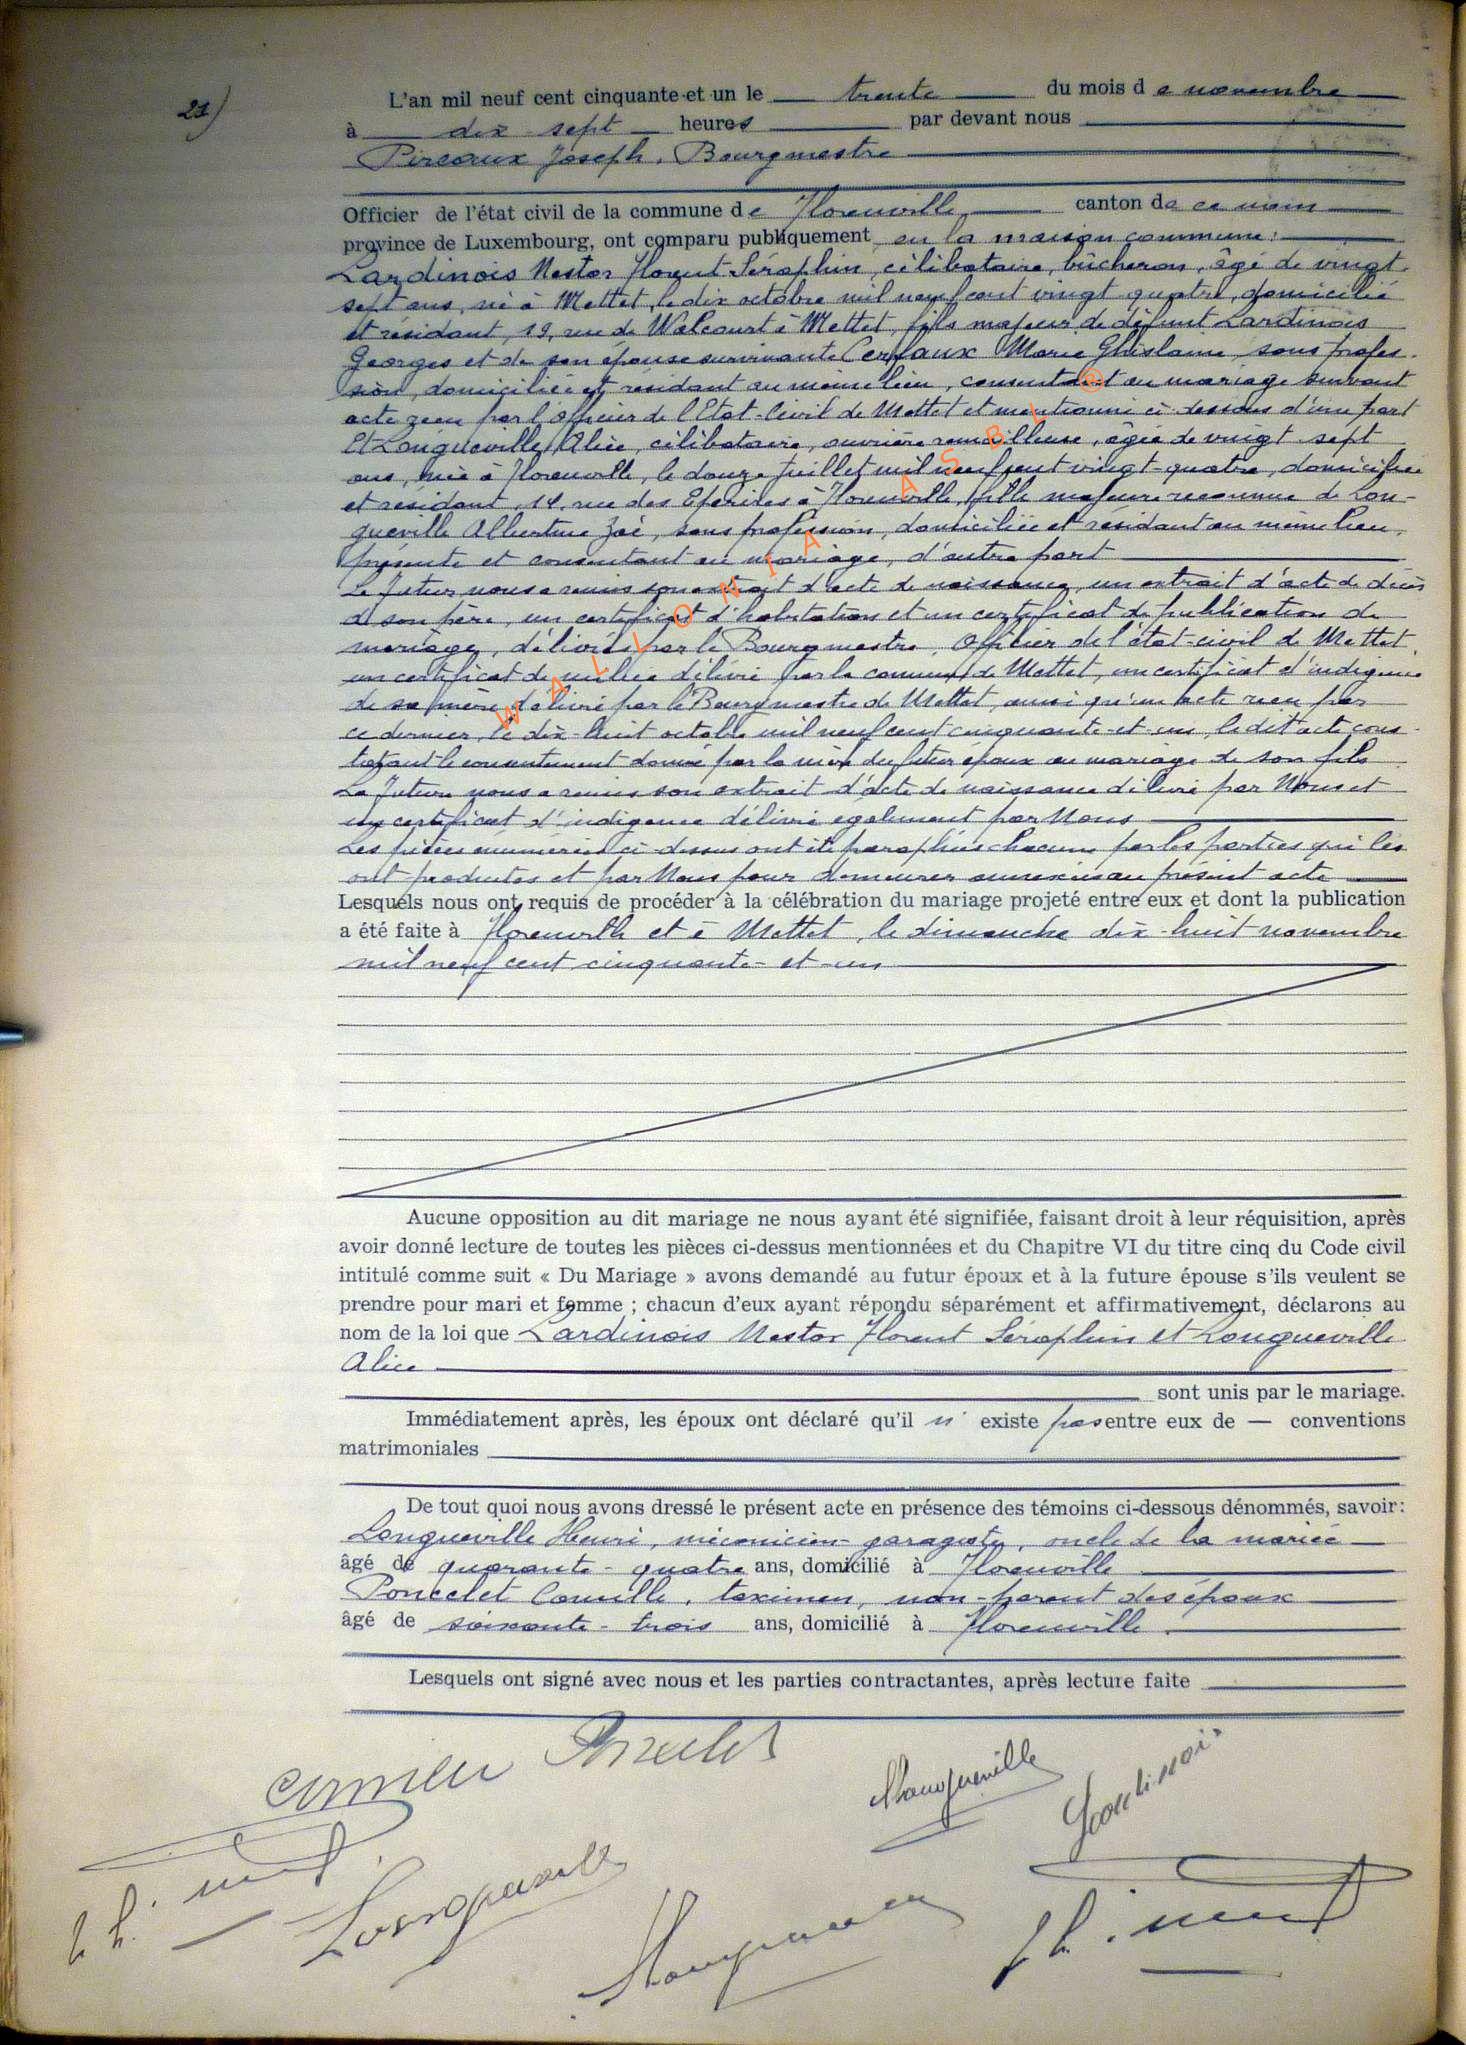 21)
L'an mil neuf cent cinquante et un le trente du mois de novembre
à dix-sept heures par devant nous
Pireaux Joseph, Bourgmestre
Officier de l'état civil de la commune de Florenville canton de ce nom
province de Luxembourg, ont comparu publiquement en la maison commune:
Lardinois Nestor Florent Séraphin, célibataire, bûcheron, âgé de vingt-
sept ans, né à Mettet, le dix octobre mil neuf cent vingt-quatre, domicilié
et résidant, 19, rue de Walcourt à Mettet, fils majeur de défunt Lardinois
Georges et de son épouse survivante Cerfaux Marie Ghislaine, sans profes-
sion, domiciliée et résidant au même lieu, consentant au mariage suivant
acte reçu par l'Officier de l'Etat-Civil de Mettet et mentionné ci-dessous d'une part
Et Longueville Alice, célibataire, ouvrière remailleuse, âgée de vingt-sept
ans, née à Florenville, le douze juillet mil neuf cent vingt-quatre, domiciliée
et résidant, 14, rue des à Florenville, fille majeure reconnue de Lon-
gueville Albertine Zoé, sans profession, domiciliée et résidant au même lieu,
présente et consentant au mariage, d'autre part
Le futur nous a remis son extrait d'acte de naissance, un extrait d'acte de décès
de son père, un certificat d'habitation et un certificat de publication de
mariage, délivrés par le Bourgmestre, Officier de l'état-civil de Mettet
un certificat de milice délivré par la commune de Mettet, un certificat d'indigence
de sa mère délivré par le Bourgmestre de Mettet, ainsi qu'un acte reçu par
ce dernier, le dix-huit octobre mil neuf cent cinquante-et-un, le dit acte cons-
tatant le consentement donné par la mère du futur époux au mariage de son fils
La future nous a remis son extrait d'acte de naissance délivré par Nous et
un certificat d'indigence délivré également par Nous
Les pièces énumérées ci-dessus ont été paraphées chacune par les parties qui les
ont produites et par Nous pour demeurer annexées au présent acte
Lesquels nous ont requis de procéder à la célébration du mariage projeté entre eux et dont la publication
a été faite à Florenville et à Mettet, le dimanche dix-huit novembre
mil neuf cent cinquante-et-un
Aucune opposition au dit mariage ne nous ayant été signifiée, faisant droit à leur réquisition, après
avoir donné lecture de toutes les pièces ci-dessus mentionnées et du Chapitre VI du titre cinq du Code civil
intitulé comme suit « Du Mariage » avons demandé au futur époux et à la future épouse s'ils veulent se
prendre pour mari et femme ; chacun d'eux ayant répondu séparément et affirmativement, déclarons au
nom de la loi que Lardinois Nestor Florent Séraphin et Longueville
Alice
sont unis par le mariage.
Immédiatement après, les époux ont déclaré qu'il n' existe pas entre eux de — conventions
matrimoniales
De tout quoi nous avons dressé le présent acte en présence des témoins ci-dessous dénommés, savoir:
Longueville Henri, mécanicien-garagiste, oncle de la mariée
âgé de quarante-quatre ans, domicilié à Florenville
Poncelet Camille, taximen, non-parent des époux
âgé de soixante-trois ans, domicilié à Florenville.
Lesquels ont signé avec nous et les parties contractantes, après lecture faite
Poncelet
Longueville
Lardinois
Longueville
WALLONIA ASBL ®